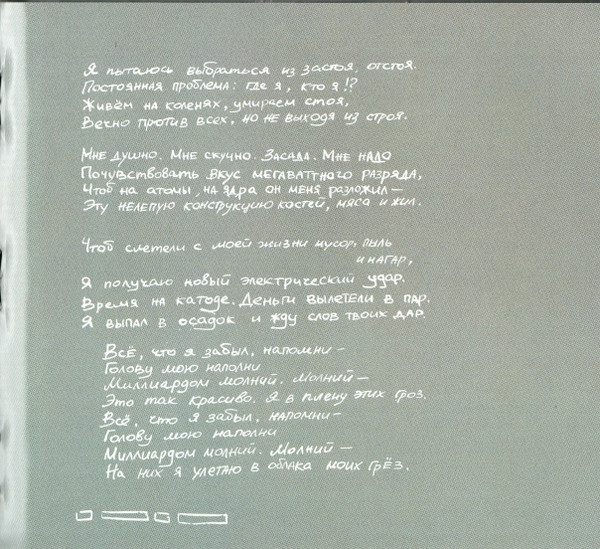 Я пытаюсь выбраться из застоя, отстоя.
Постоянная проблема: где я, кто я!?
Живём на коленях, умираем стоя,
Вечно против всех, но не выходя из строя.
Мне душно. Мне скучно. Засада. Мне надо
Почувствовать вкус мегаваттного разряда,
Чтоб на атомы, на ядра он меня разложил —
Эту нелепую конструкцию костей, мяса и жил.
Чтоб слетели с моей жизни мусор, пыль
и нагар,
Я получаю новый электрический удар.
Время на катоде. Деньги вылетели в пар.
Я выпал в осадок и жду слов твоих дар.
Всё, что я забыл, напомни —
Голову мою наполни
Миллиардом молний. Молний —
Это так красиво. Я в плену этих гроз.
Всё, что я забыл, напомни —
Голову мою наполни
Миллиардом молний. Молний —
На них я улетаю в облака моих грёз.